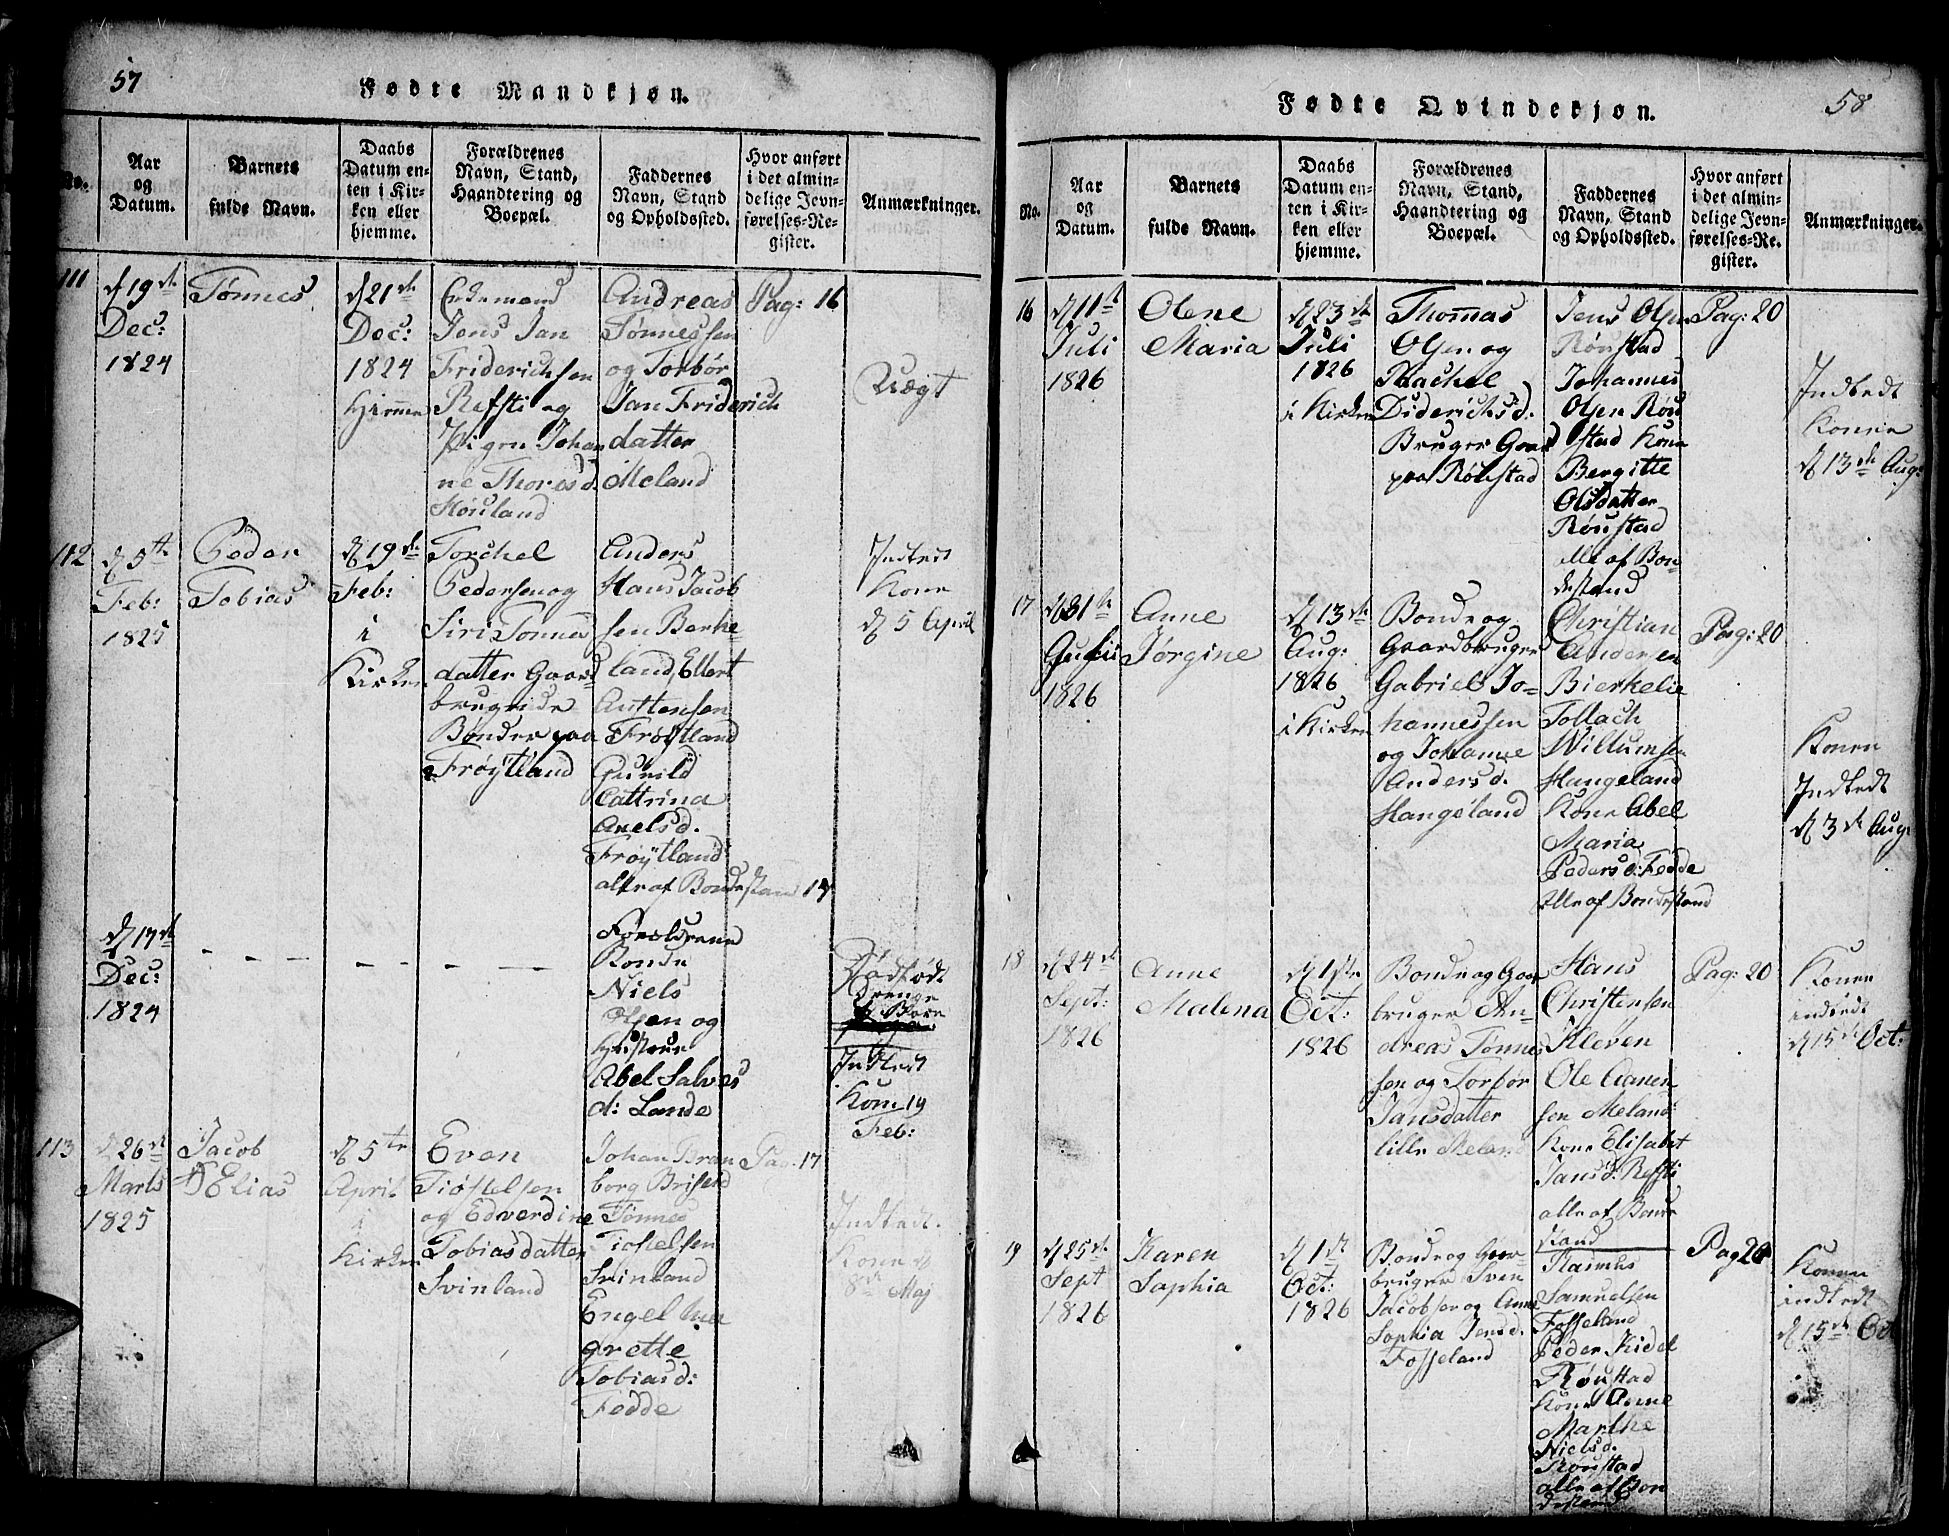 57
Fødte Mandkjøn.
No.
Aar
og
Datum.
Barnets
fulde Navn.
Daabs
Datum en-
ten i Kir-
ken eller
hjemme.
Forældrenes
Navn, Stand,
Haandtering og
Boepæl.
Faddernes
Navn, Stand
og Opholdssted.
Hvor anført
i det almin-
delige Jevn-
førelses-Re-
gister.
Anmærkninger.
111
d 19de
Dec:
1824
Tønnes
d 21de
Dec:
1824
Hjemme
Enkemand
Jens Jan
Friderichsen
Refsti og
Pigen Johan
ne Thoresd.
Høuland
Andreas
Tønnessen
og Torbør
Jan Friderich
datter
Meland
Pag: 16
Uægt
112
d 5te
Feb:
1825
Peder
Tobias
d 19de
Feb:
i
Kirken
Torchel
Pedersen og
Siri Tønnes
datter Gaard
brugende
Bønder paa
Frøytland
Anders
Hans Jacob
sen Berke
land, Elbert
Anttensen
Frøytland
Gunild
Cattrina
Axelsd.
Frøytland
alle af Bondestand 17
Indledt
Kone
d 5 April
d 17de
Dec:
1824
Forældrene
Bonde
Niels
Olsen og
Hustrue
Abel Salves
d: Lande
Dødfødt
Drenge
Barn
Indledt
Kone 19
Feb:
113
d 26de
Marts
1825
Jacob
Elias
d 5te
April
i
Kirken
Even
Tiøstelsen
og Edverdine
Tobiasdatter
Svinland
Johan Bran
borg Briseid
Tønnes
Tiøstelsen
Svinland
Engel Mar
grette
Tobiasd:
Fedde
Pag. 17
Indledt.
Kone d
8de Maj
Fødte Qvindekjøn.
58
No.
Aar
og
Datum.
Barnets
fulde Navn.
Daabs
Datum en-
ten i Kir-
ken eller
hjemme.
Forældrenes
Navn, Stand,
Haandtering og
Boepæl.
Faddernes
Navn, Stand
og Opholdssted.
Hvor anført
i det almin-
delige Jevn-
førelses-Re-
gister.
Anmærkninger.
16
d 11te
Juli
1826
Olene
Maria
d 23de
Juli
1826
i Kirken
Thomas
Olsen og
Rachel
Diderichsd.
Bruger Gaard
paa Rønstad
Jens Olsen
Rønstad
Johannes
Olsen Røn
stad Kone
Bergitte
Olsdatter
Rønstad
alle af Bon-
destand
Pag: 20
Indledt
Konen
d 13de Aug:
17
d 31te
Juli
1826
Anne
Jørgine
d 13de
Aug:
1826
i Kirken
Bonde og
Gaardbruger
Gabriel Jo-
hannessen
og Johanne
Andersd.
Hangeland
Christian
Andersen
Bierkelie
Tollach
Willumsen
Hangeland
Kone Abel
Maria
Pedersd: Fedde
alle af Bondestand
Pag: 20
Konen
Indledt
d 3de Aug:
18
d 24de
Sept:
1826
Anne
Malena
d 1ste
Oct:
1826
Bonde og Gaar
bruger An-
dreas Tønnes
sen og Torbør
Jansdatter
lille Meland
Hans
Christensen
Kleven
Ole Aanen
sen Meland
Kone Elisabet
Jansd: Refsti
alle af Bonde
stand
Pag: 20
Konen
indledt
d 15de Oct:
19
d 25de
Sept
1826
Karen
Sophia
d 1ste
Oct:
1826
Bonde og Gaar
bruger Sven
Jacobsen og Anne
Sophia Jensd.
Fosseland
Rasmus
Samuelsen
Fosseland
Peder Kidel
Rønstad
Kone Anne
Marthe
Nielsd.
Rønstad
alle af Bon
destand
Pag 20
Konen
indledt
d 15de Oct